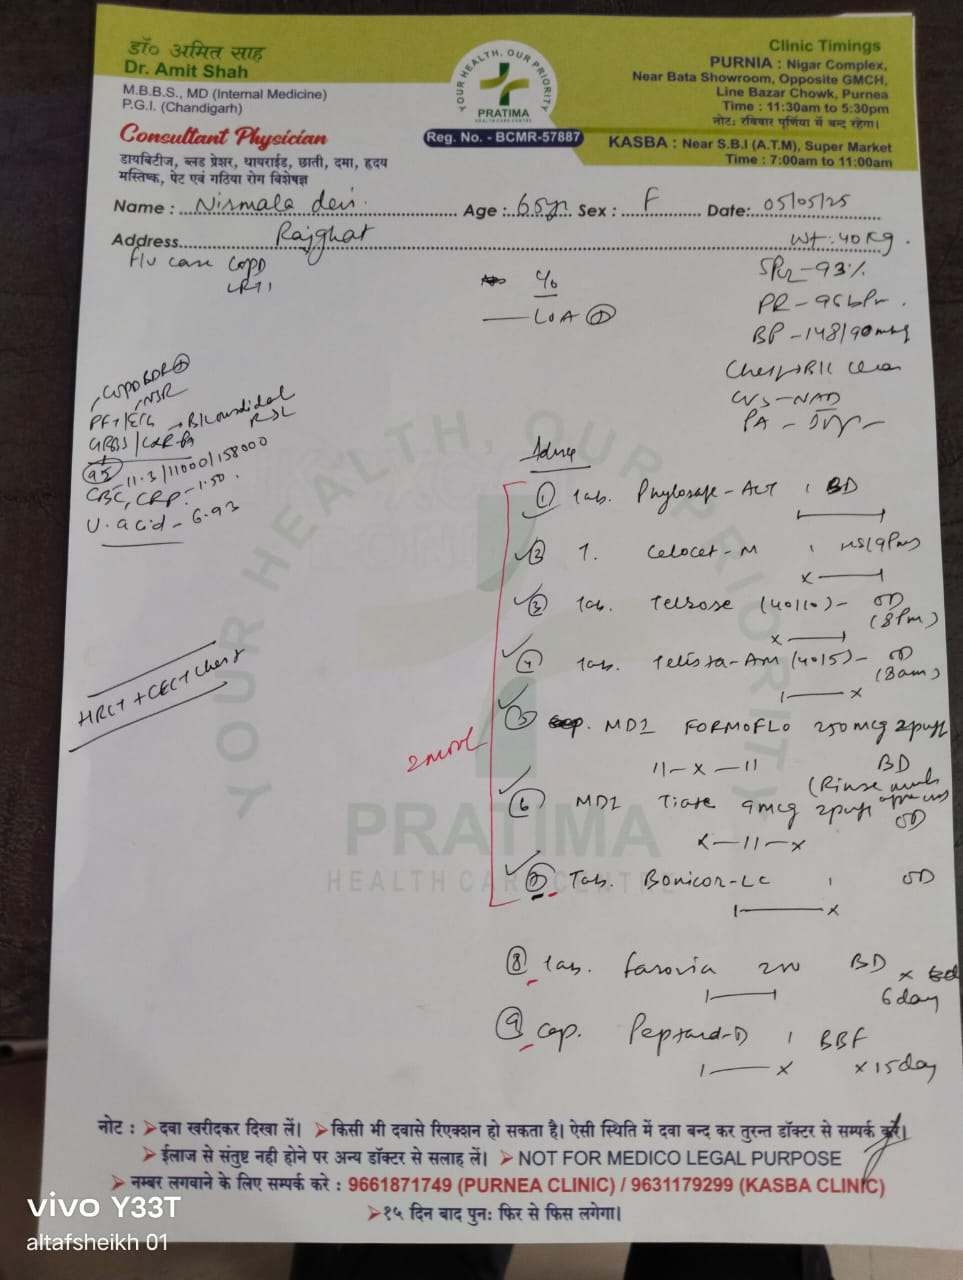 डॉ० अमित साह
Dr. Amit Shah
M.B.B.S., MD (Internal Medicine)
P.G.I. (Chandigarh)
Consultant Physician
डायबिटीज, ब्लड प्रेशर, थायराईड, छाती, दमा, हृदय
मस्तिष्क, पेट एवं गठिया रोग विशेषज्ञ
YOUR HEALTH, OUR PRIORITY
PRATIMA
HEALTH CARE CENTRE
Reg. No. - BCMR-57887
Clinic Timings
PURNIA : Nigar Complex,
Near Bata Showroom, Opposite GMCH,
Line Bazar Chowk, Purnea
Time : 11:30am to 5:30pm
नोट: रविवार पूर्णिया में बन्द रहेगा।
KASBA : Near S.B.I (A.T.M), Super Market
Time : 7:00am to 11:00am
Name : Nirmala devi Age : 65yr Sex : F Date: 05/05/25
Address Rajghat
Wt: 40 Kg.
flu case COPD
LRTI
c/o
LOA +
SPO2 - 93%
PR - 96 bPm.
BP - 148/90 mmHg
Chest B/L clear
CVS - NAD
PA -
COPD BDR +
NSR
PFT/ECG
95 11.3/11000/158000
CBC, CRP - 1.50
U. acid - 6.93
HRCT + CECT Chest
Advice
1 Tab. Phylosafe - ACT 1 BD
2 T. Celocet - M 1 HS(9Pm)
x
3 Tab. (40/10) - OD
(8Pm)
x
4 Tab. Telista-AM (40/5) - OD
(8am)
x
5 MDI FORMOFLO 250 mcg 2puff
11 - x - 11 BD
(Rinse mouth
6 MDI Tiate 9mcg 2puff
OD
x - 11 - x
7 Tab. Bonicor-LC 1 OD
x
8 Tab. farovia 200 BD x
6 day
9 Cap. Peptard-D 1 BBF
x x 15 day
YOUR HEALTH, OUR PRIORITY
PRATIMA
HEALTH CARE CENTRE
नोट : ➤दवा खरीदकर दिखा लें। ➤किसी भी दवासे रिएक्शन हो सकता है। ऐसी स्थिति में दवा बन्द कर तुरन्त डॉक्टर से सम्पर्क करें।
➤ईलाज से संतुष्ट नही होने पर अन्य डॉक्टर से सलाह लें। ➤ NOT FOR MEDICO LEGAL PURPOSE
➤ नम्बर लगवाने के लिए सम्पर्क करे : 9661871749 (PURNEA CLINIC) / 9631179299 (KASBA CLINIC)
➤१५ दिन बाद पुनः फिर से फिस लगेगा।
vivo Y33T
altafsheikh 01